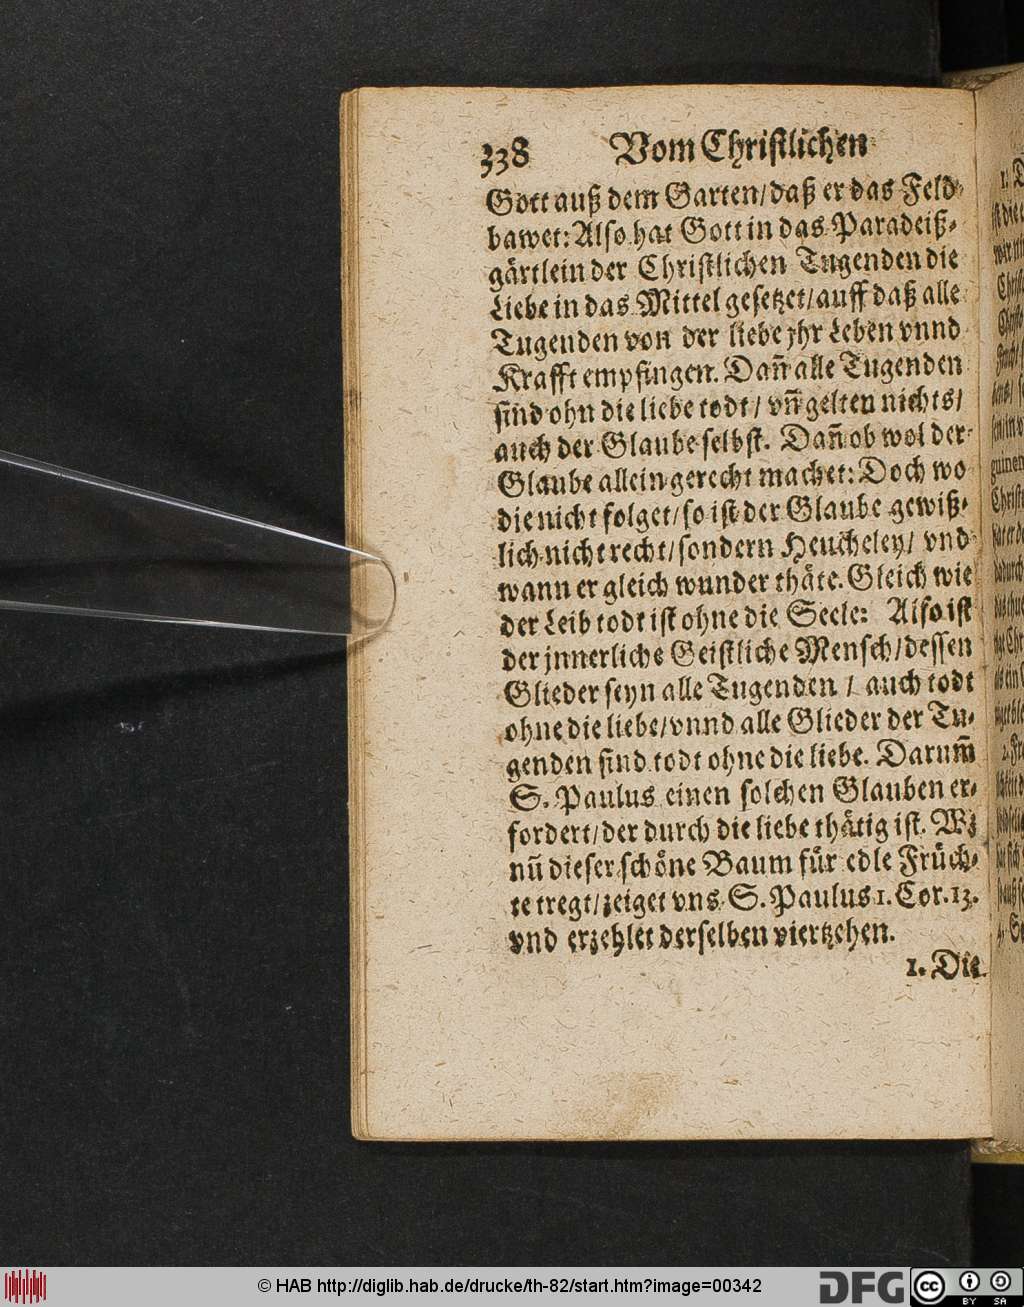 338 Vom Christlichen
Gott auß dem Garten/daß er das Feld
bawet: Also hat Gott in das Paradeiß-
gärtlein der Christlichen Tugenden die
Liebe in das Mittel gesetzet/auff daß alle
Tugenden von der liebe jhr Leben vnnd
Krafft empfingen. Dañ alle Tugenden
sind ohn die liebe todt/ vñ gelten nichts/
auch der Glaube selbst. Dañ ob wol der
Glaube allein gerecht machet: Doch wo
die nicht folget/so ist der Glaube gewiß-
lich nicht recht/sondern Heucheley/ vnd
wann er gleich wunder thäte. Gleich wie
der Leib todt ist ohne die Seele: Also ist
der jnnerliche Geistliche Mensch/dessen
Glieder seyn alle Tugenden / auch todt
ohne die liebe/vnnd alle Glieder der Tu-
genden sind todt ohne die liebe. Darum̃
S. Paulus einen solchen Glauben er-
fordert/der durch die liebe thätig ist. Wz
nũ dieser schöne Baum für edle Früch-
te tregt/zeiget vns S. Paulus 1. Cor. 13.
vnd erzehlet derselben viertzehen.
1. Die
© HAB http://diglib.hab.de/drucke/th-82/start.htm?image=00342
DFG
cc BY SA